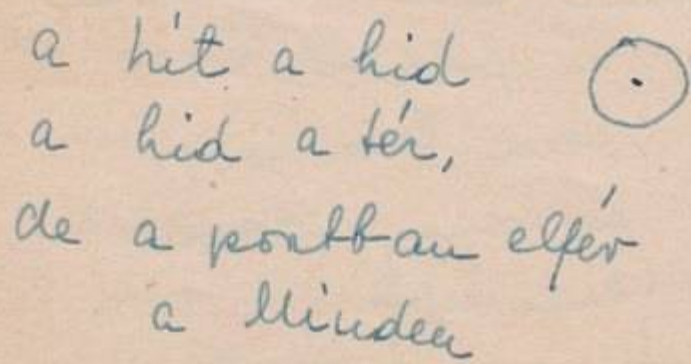 a hit a hid
a hid a tér,
de a pontban elfér
a Minden